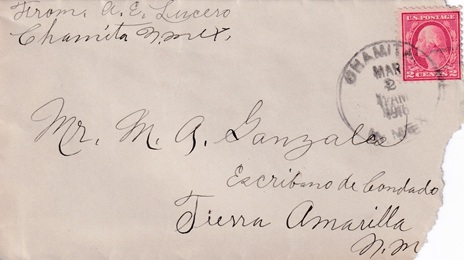 From A. E. Lucero
Chamita N. Mex.
U.S. POSTAGE
2 CENTS 2
CHAMITA
MAR
2
N. MEX.
Mr. M. A. Gonzales
Escribano de Condado
Tierra Amarilla
N. M